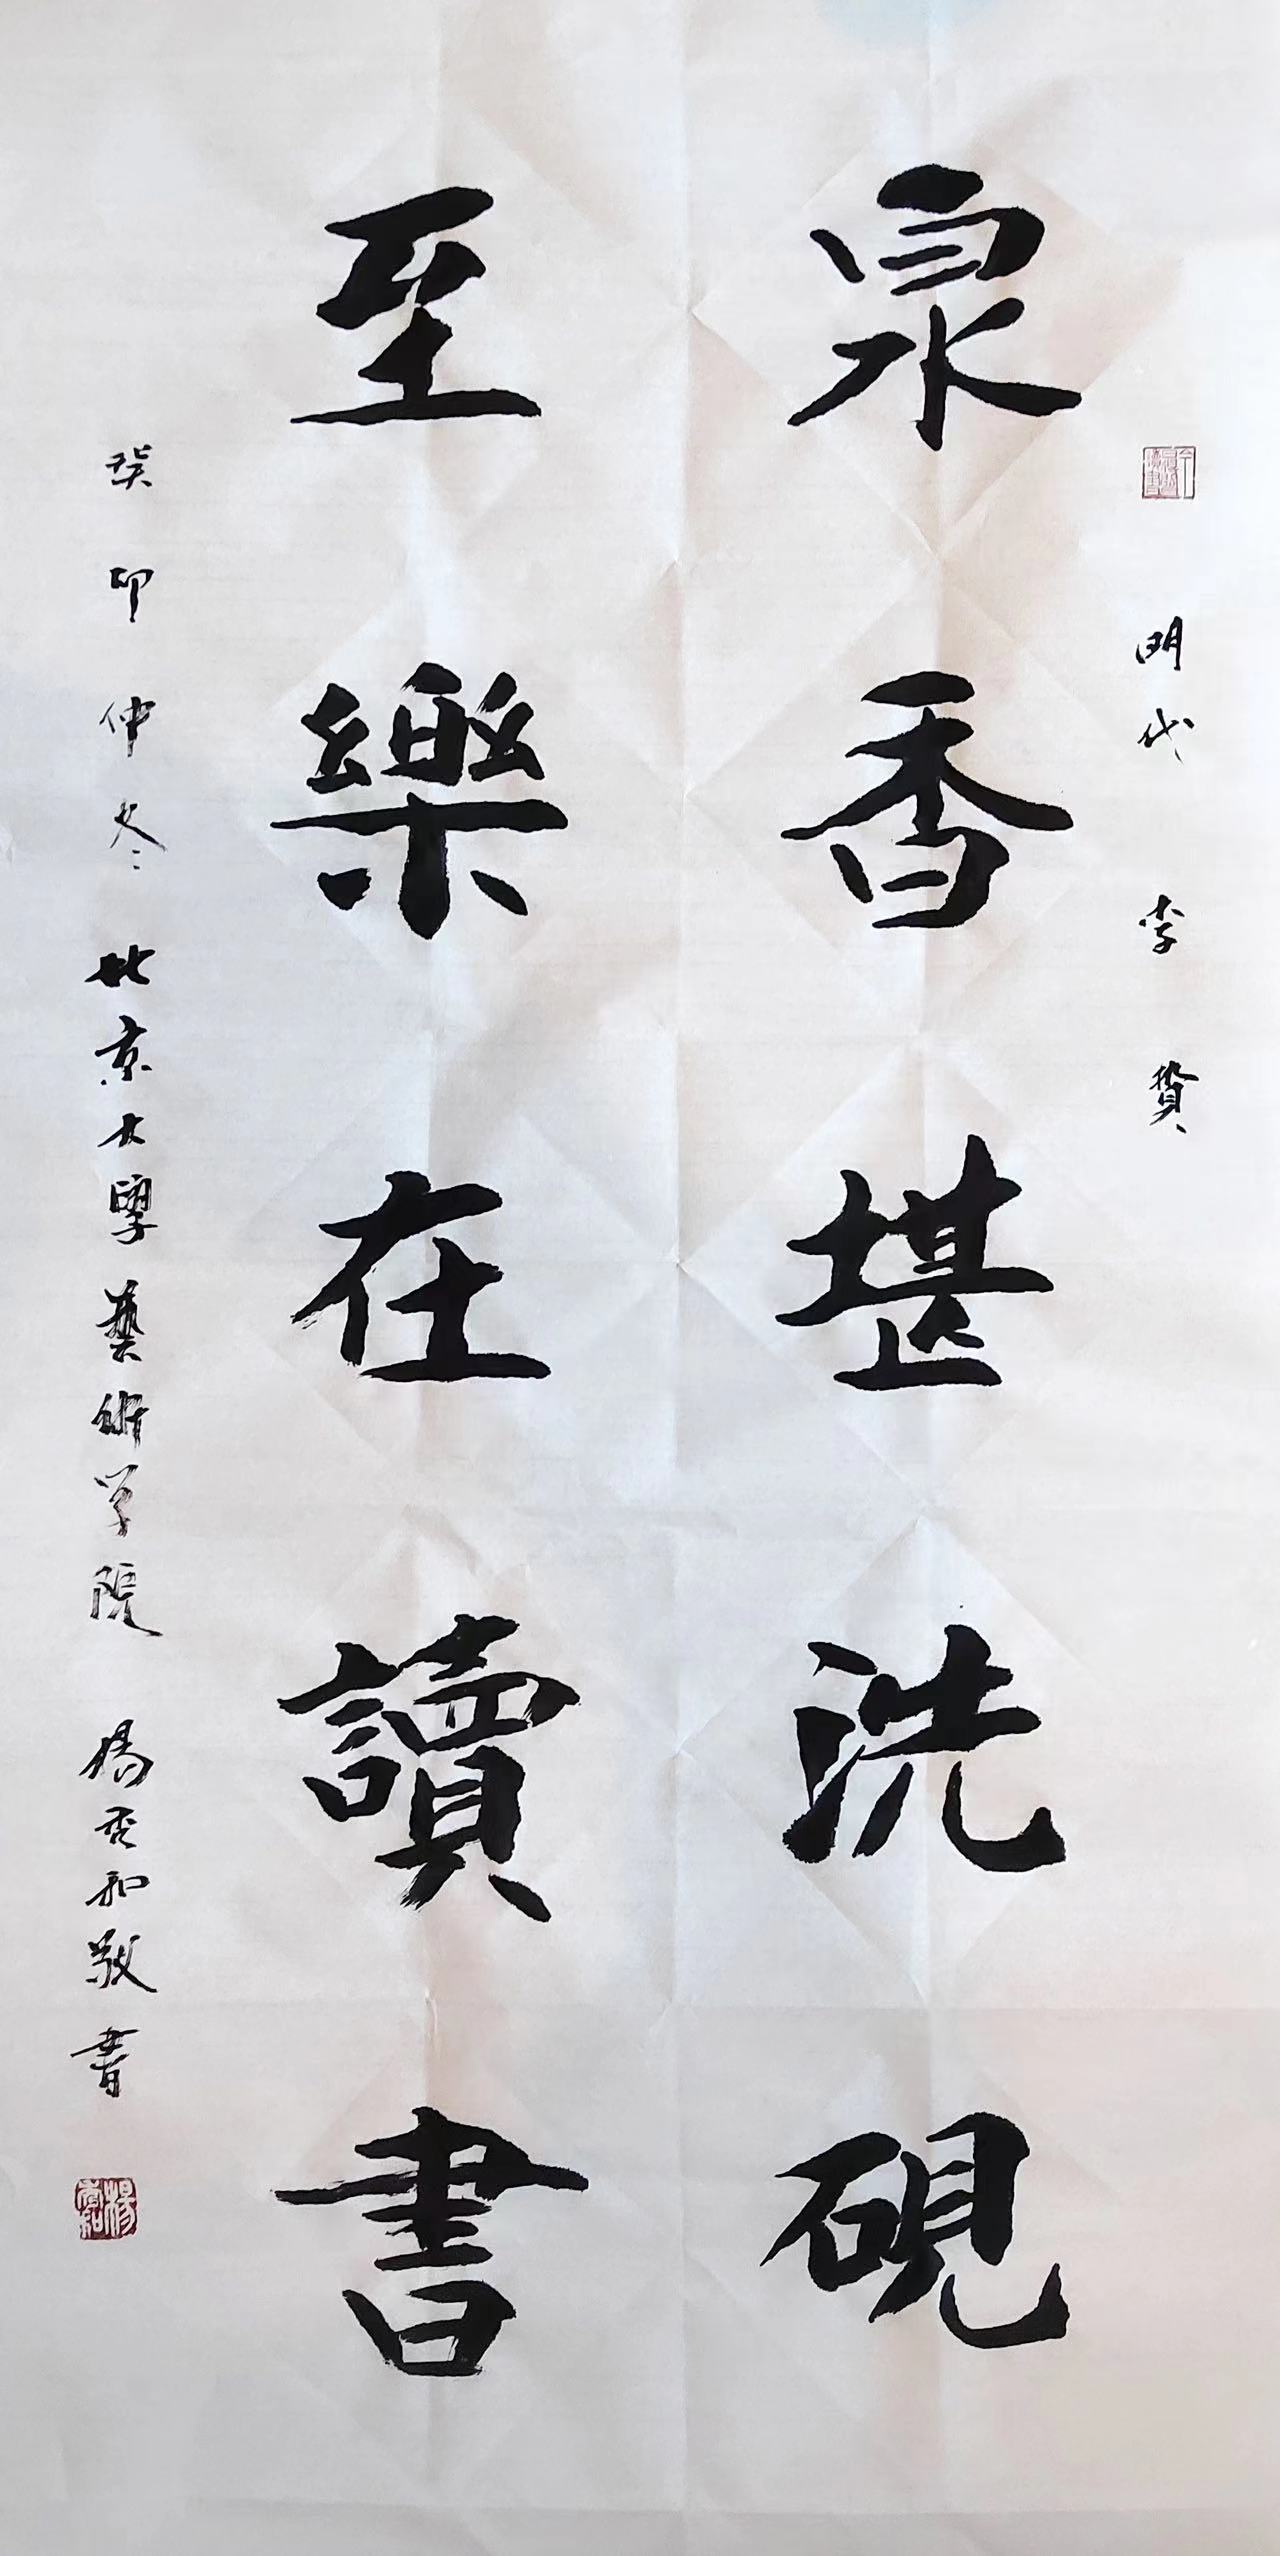 明代 李贄
泉香堪洗硯
至樂在讀書
癸卯仲冬 北京大學藝術学院 楊秀和敬書
楊秀和